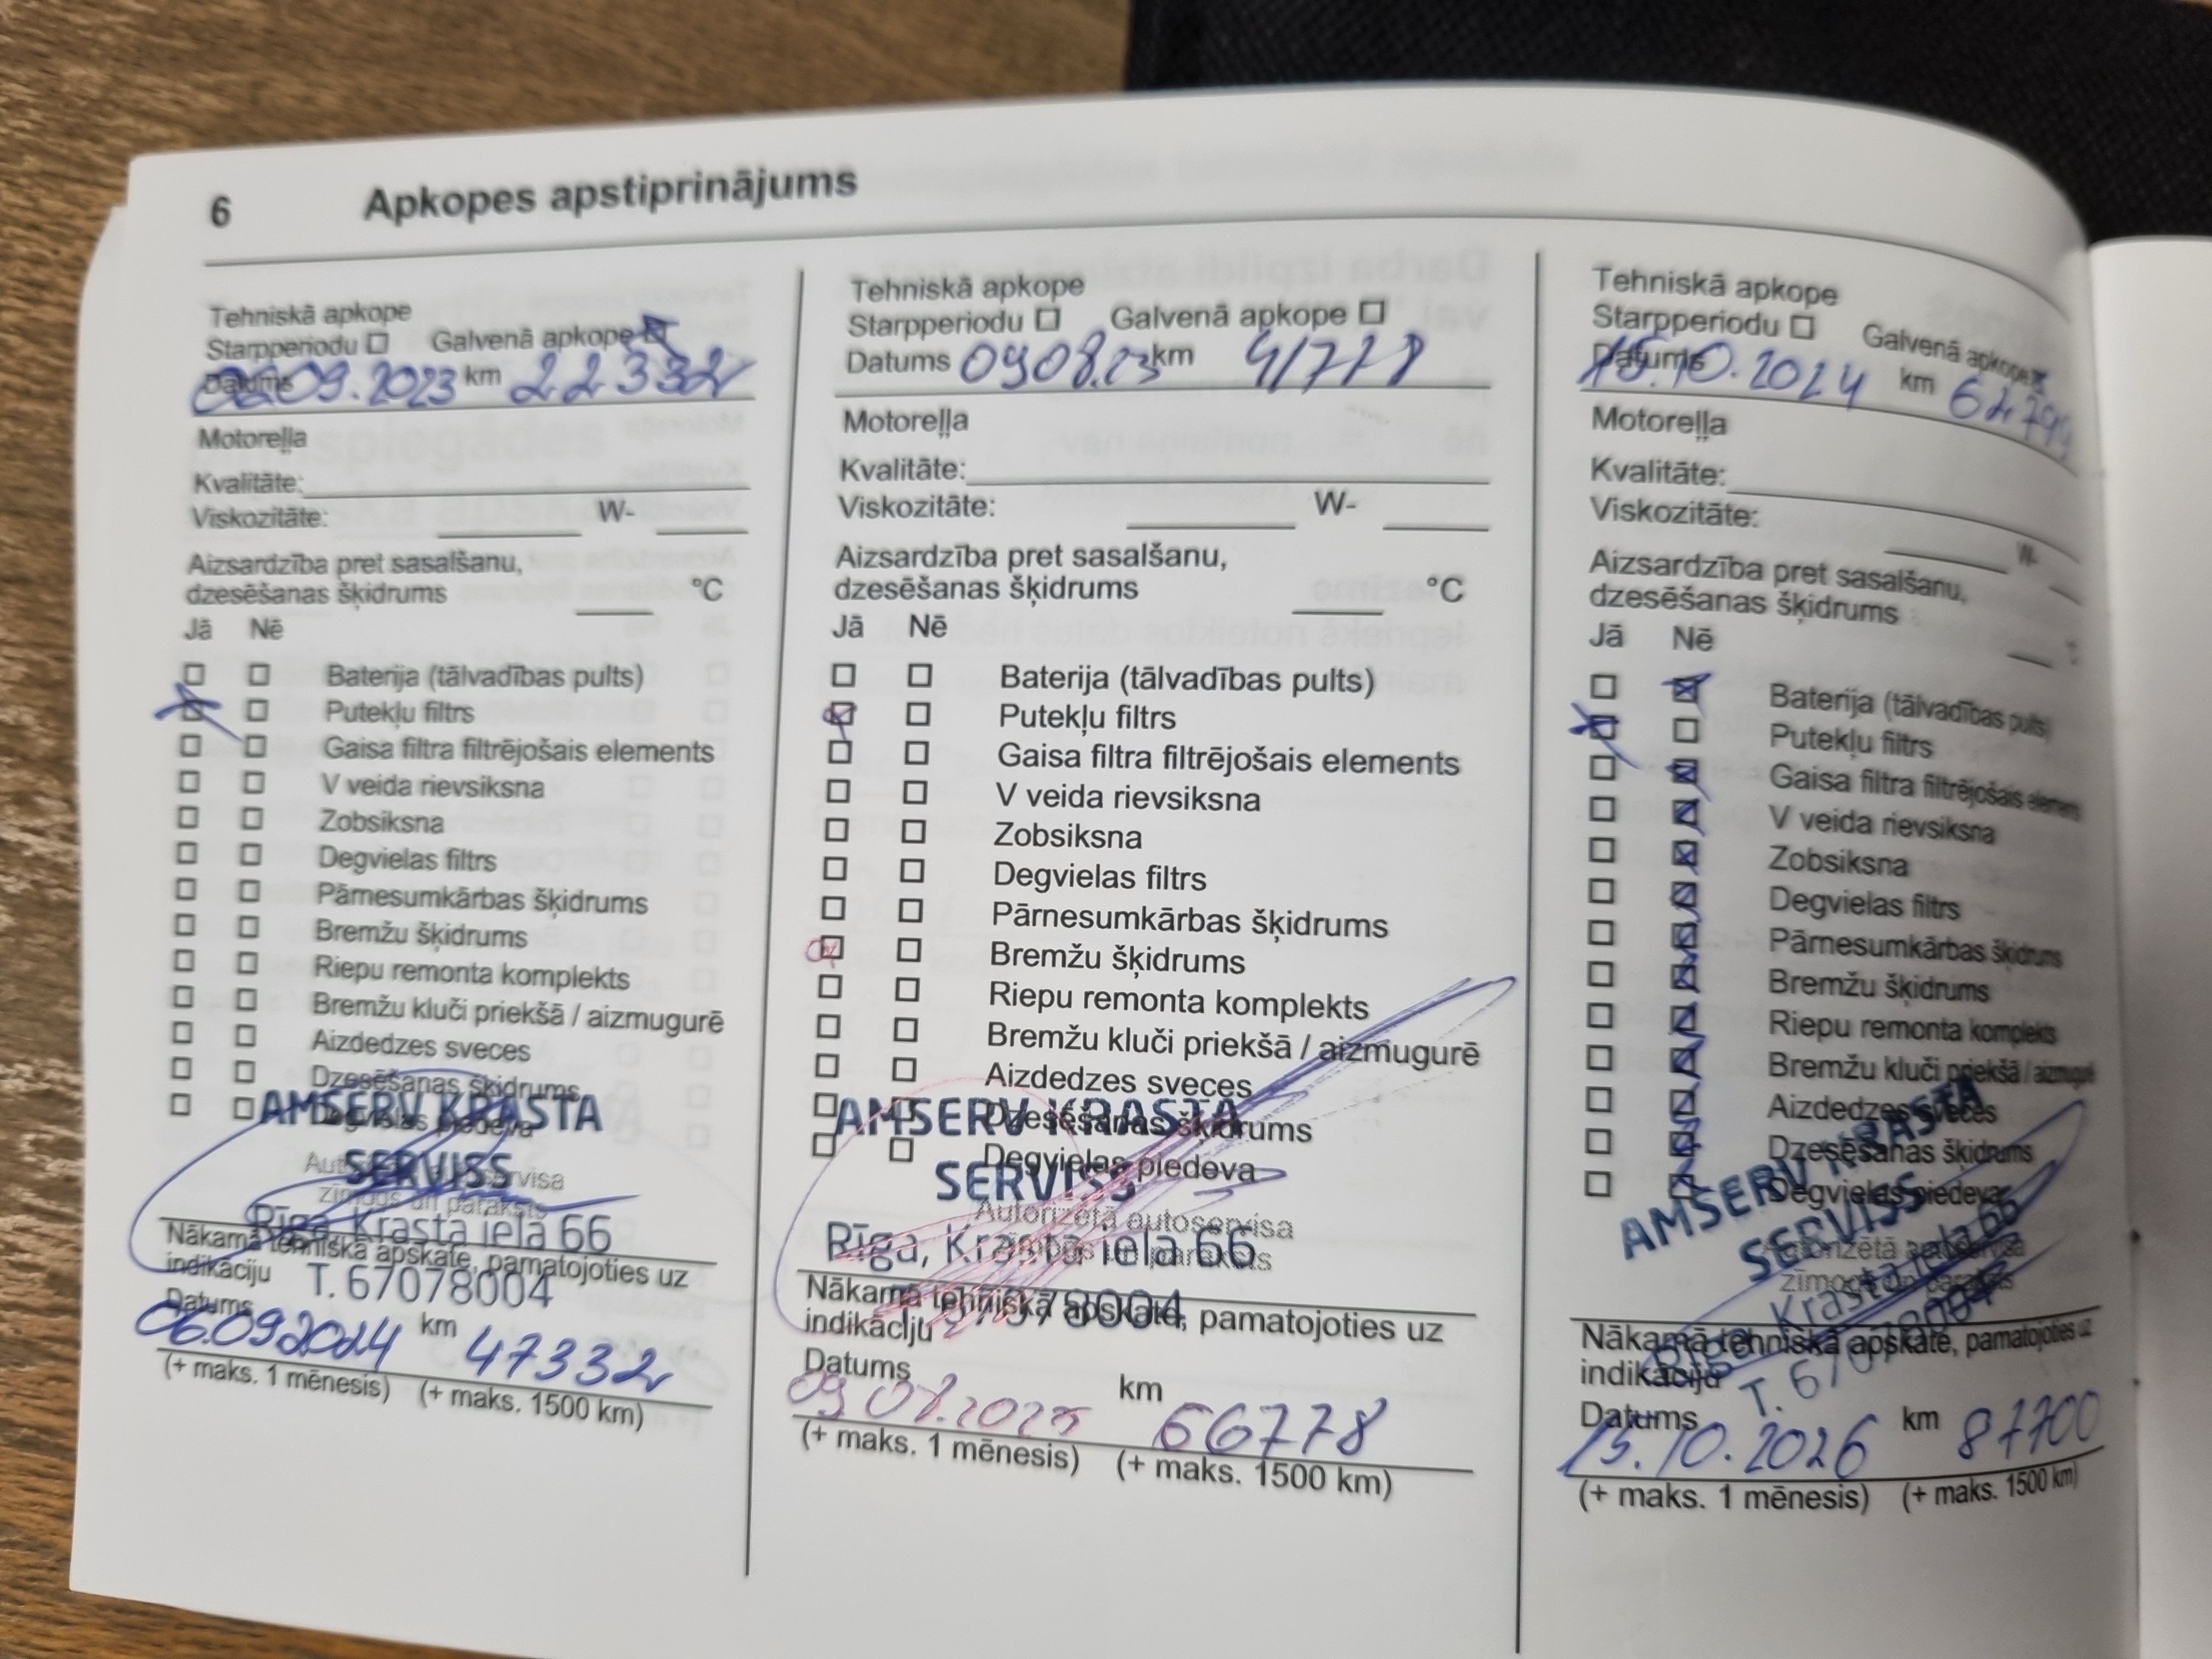 6 Apkopes apstiprinājums
Tehniskā apkope
Starpperiodu Galvenā apkope
Datums 06.09.2023 km 22332
Motoreļļa
Kvalitāte:
Viskozitāte: W-
Aizsardzība pret sasalšanu,
dzesēšanas šķidrums °C
Jā Nē
Baterija (tālvadības pults)
Putekļu filtrs
Gaisa filtra filtrējošais elements
V veida rievsiksna
Zobsiksna
Degvielas filtrs
Pārnesumkārbas šķidrums
Bremžu šķidrums
Riepu remonta komplekts
Bremžu kluči priekšā / aizmugurē
Aizdedzes sveces
Dzesēšanas šķidrums
Degvielas piedeva
AMSERV KRASTA
SERVISS
zīmogs un paraksts
Rīga, Krasta iela 66
Nākamā tehniskā apskate, pamatojoties uz
indikāciju
T. 67078004
Datums 06.09.2024 km 47332
(+ maks. 1 mēnesis) (+ maks. 1500 km)
Tehniskā apkope
Starpperiodu Galvenā apkope
Datums 09.08.23 km 41778
Motoreļļa
Kvalitāte:
Viskozitāte: W-
Aizsardzība pret sasalšanu,
dzesēšanas šķidrums °C
Jā Nē
Baterija (tālvadības pults)
Putekļu filtrs
Gaisa filtra filtrējošais elements
V veida rievsiksna
Zobsiksna
Degvielas filtrs
Pārnesumkārbas šķidrums
Bremžu šķidrums
Riepu remonta komplekts
Bremžu kluči priekšā / aizmugurē
Aizdedzes sveces
Dzesēšanas šķidrums
Degvielas piedeva
AMSERV KRASTA
SERVISS
Autorizētā autoservisa
zīmogs un paraksts
Rīga, Krasta iela 66
Nākamā tehniskā apskate, pamatojoties uz
indikāciju
Datums 09.08.2025 km 66778
(+ maks. 1 mēnesis) (+ maks. 1500 km)
Tehniskā apkope
Starpperiodu Galvenā apkope
Datums 15.10.2024 km
Motoreļļa
Kvalitāte:
Viskozitāte: W-
Aizsardzība pret sasalšanu,
dzesēšanas šķidrums
Jā Nē
Baterija (tālvadības pults)
Putekļu filtrs
Gaisa filtra filtrējošais elements
V veida rievsiksna
Zobsiksna
Degvielas filtrs
Pārnesumkārbas šķidrums
Bremžu šķidrums
Riepu remonta komplekts
Bremžu kluči priekšā / aizmugurē
Aizdedzes sveces
Dzesēšanas šķidrums
Degvielas piedeva
AMSERV KRASTA
SERVISS
Autorizētā autoservisa
zīmogs un paraksts
Rīga, Krasta iela 66
T. 67078004
Nākamā tehniskā apskate, pamatojoties uz
indikāciju
Datums 15.10.2026 km 87700
(+ maks. 1 mēnesis) (+ maks. 1500 km)